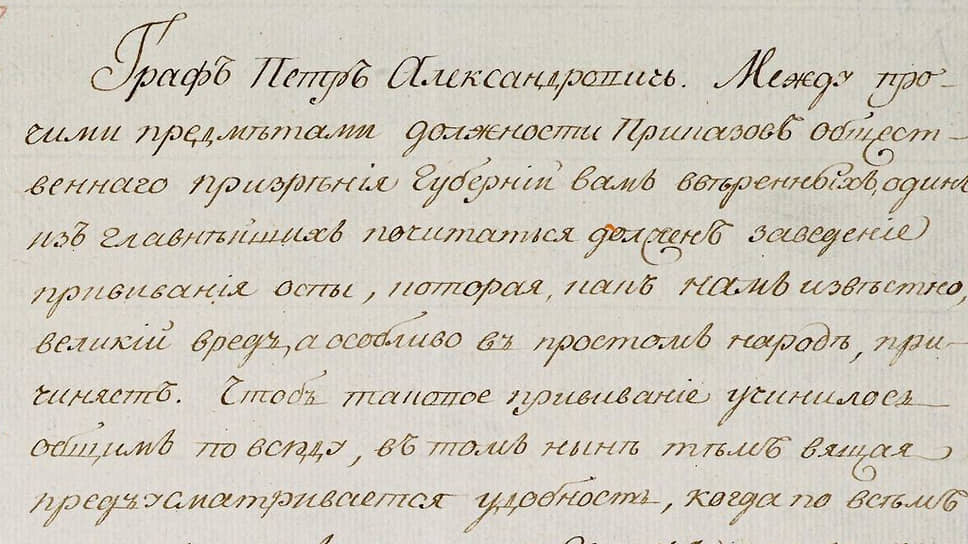 Графъ Петръ Александровичь. Между про-
чими предмѣтами должности Приказовъ общест-
веннаго призрѣнія Губерній вамъ ввѣренныхъ, одинъ
изъ главнѣйшихъ почитаться долженъ заведеніе
прививанія оспы, которая, какъ намъ извѣстно,
великій вредъ, а особливо въ простомъ народѣ, при-
чиняетъ. Чтобъ таковое прививаніе учинилось
общимъ повсюду, въ томъ нынѣ тѣмъ вящая
предъусматривается удобность, когда по всѣмъ